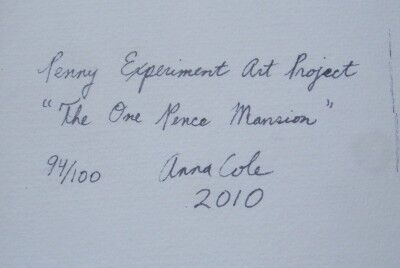 Penny Experiment Art Project
"The One Pence Mansion"
94/100 Anna Cole
2010